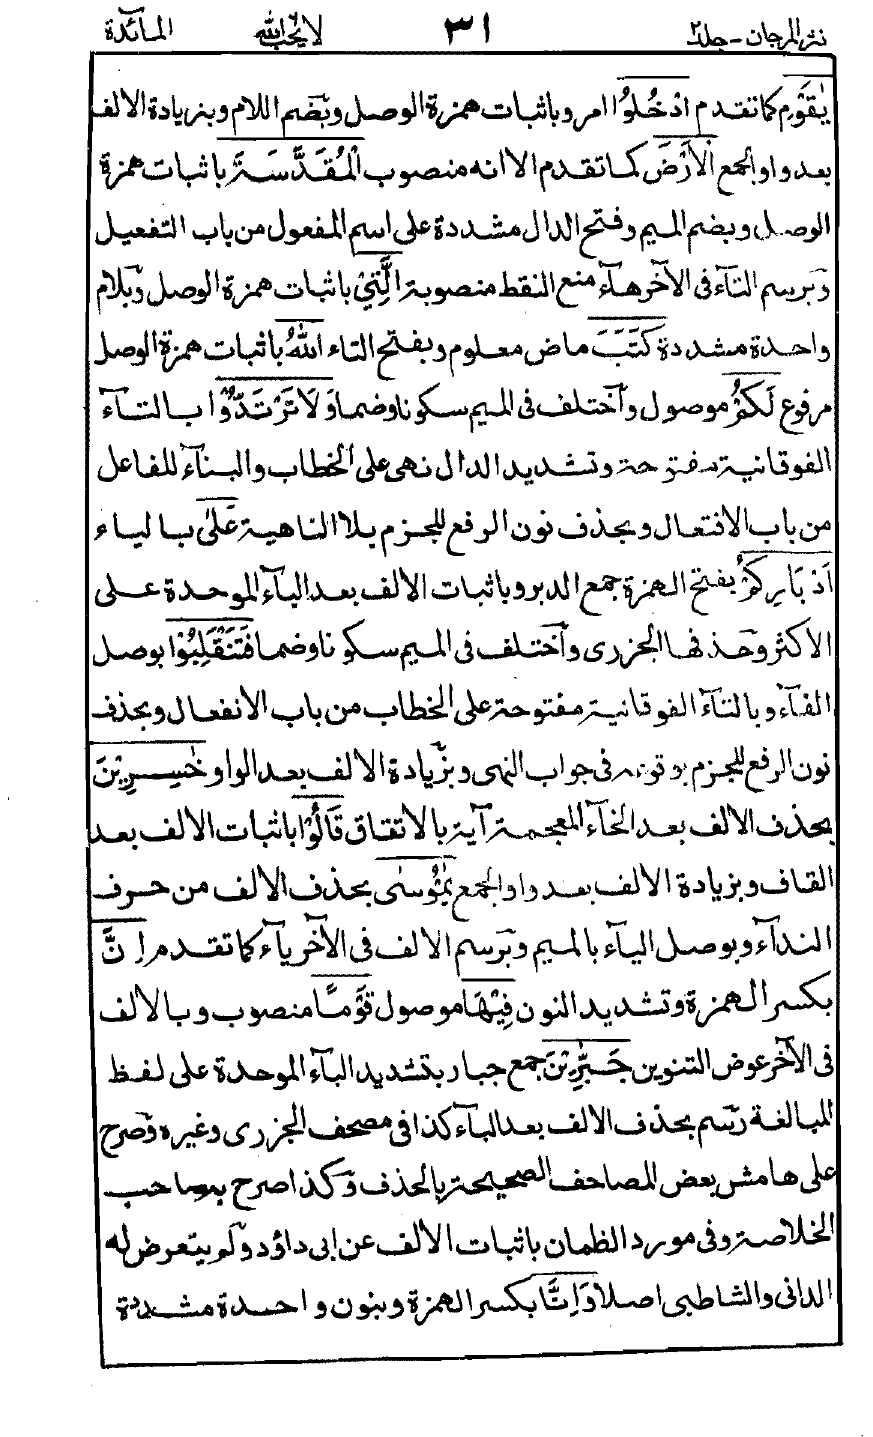 نثر المرجان - جلد ٢ ٣١ لا يحب الله المائدة
يٰقَوْمِ كما تقدم ادْخُلُوْا امر وباثبات همزة الوصل وبضم اللام وبزيادة الالف
بعد واو الجمع الْاَرْضَ كما تقدم الا انه منصوب الْمُقَدَّسَةَ باثبات همزة
الوصل وبضم الميم وفتح الدال مشددة على اسم المفعول من باب التفعيل
وبرسم التاء فى الآخر هاء منع النقط منصوبة الَّتِيْ باثبات همزة الوصل وبلام
واحدة مشددة كَتَبَ ماض معلوم وبفتح التاء اللهُ باثبات همزة الوصل
مرفوع لَكُمْ موصول واختلف فى الميم سكونا وضما وَلَا تَرْتَدُّوْا بالتاء
الفوقانية مفتوحة وتشديد الدال نهى على الخطاب والبناء للفاعل
من باب الافتعال وبحذف نون الرفع للجزم بلا الناهية عَلٰى بالياء
اَدْبَارِكُمْ بفتح الهمزة جمع الدبر وباثبات الالف بعد الباء الموحدة على
الاكثر وحذفها الجزرى واختلف فى الميم سكونا وضما فَتَنْقَلِبُوْا بوصل
الفاء وبالتاء الفوقانية مفتوحة على الخطاب من باب الانفعال وبحذف
نون الرفع للجزم بوقوعه فى جواب النهى وبزيادة الالف بعد الواو خٰسِرِيْنَ
بحذف الالف بعد الخاء المعجمة آية بالاتفاق قَالُوْا باثبات الالف بعد
القاف وبزيادة الالف بعد واو الجمع يٰمُوْسٰى بحذف الالف من حرف
النداء وبوصل الياء بالميم وبرسم الالف فى الآخر ياء كما تقدم اِنَّ
بكسر الهمزة وتشديد النون فِيْهَا موصول قَوْمًا منصوب وبالالف
فى الآخر عوض التنوين جَبّٰرِيْنَ جمع جبار بتشديد الباء الموحدة على لفظ
المبالغة رسم بحذف الالف بعد الباء كذا فى مصحف الجزرى وغيره وصرح
على هامش بعض المصاحف الصحيحة بالحذف وكذا صرح به صاحب
الخلاصة وفى مورد الظمان باثبات الالف عن ابى داؤد ولم يتعرض له
الدانى والشاطبى اصلا وَاِنَّا بكسر الهمزة وبنون واحدة مشددة